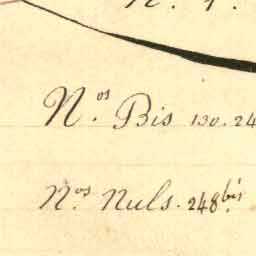 N. 1.
N.os Bis 130. 24
N.os Nuls. 248 bis